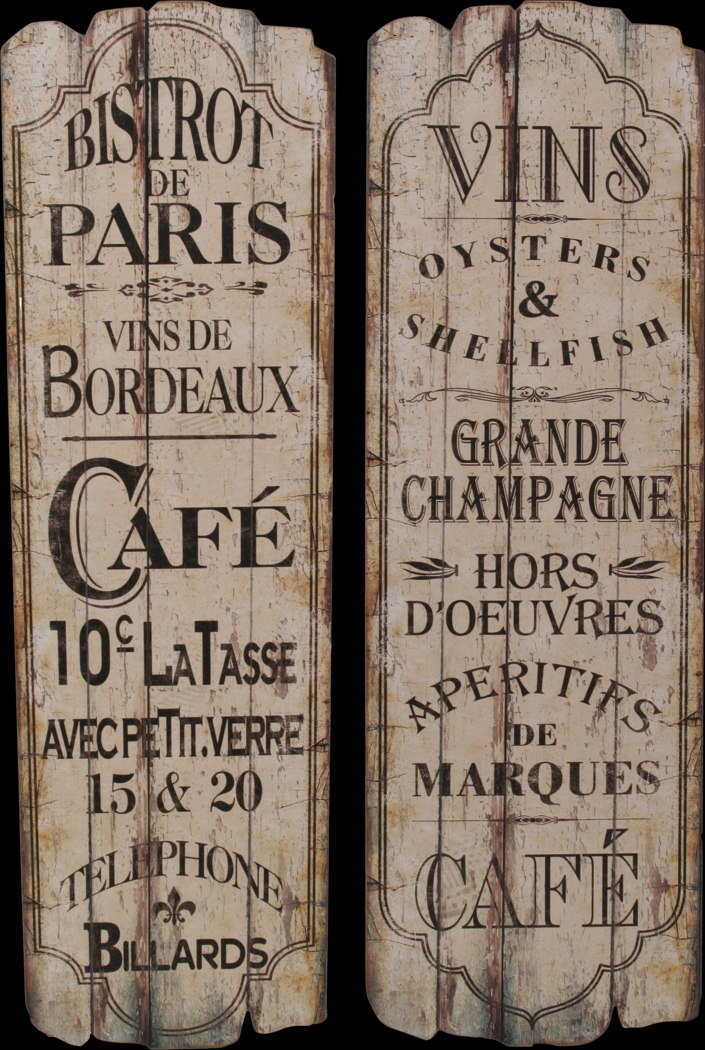 BISTROT
DE
PARIS
VINS DE
BORDEAUX
CAFÉ
10c LA TASSE
AVEC PETIT.VERRE
15 & 20
TELEPHONE
BILLARDS
VINS
OYSTERS
&
SHELLFISH
GRANDE
CHAMPAGNE
HORS
D'OEUVRES
APERITIFS
DE
MARQUES
CAFÉ